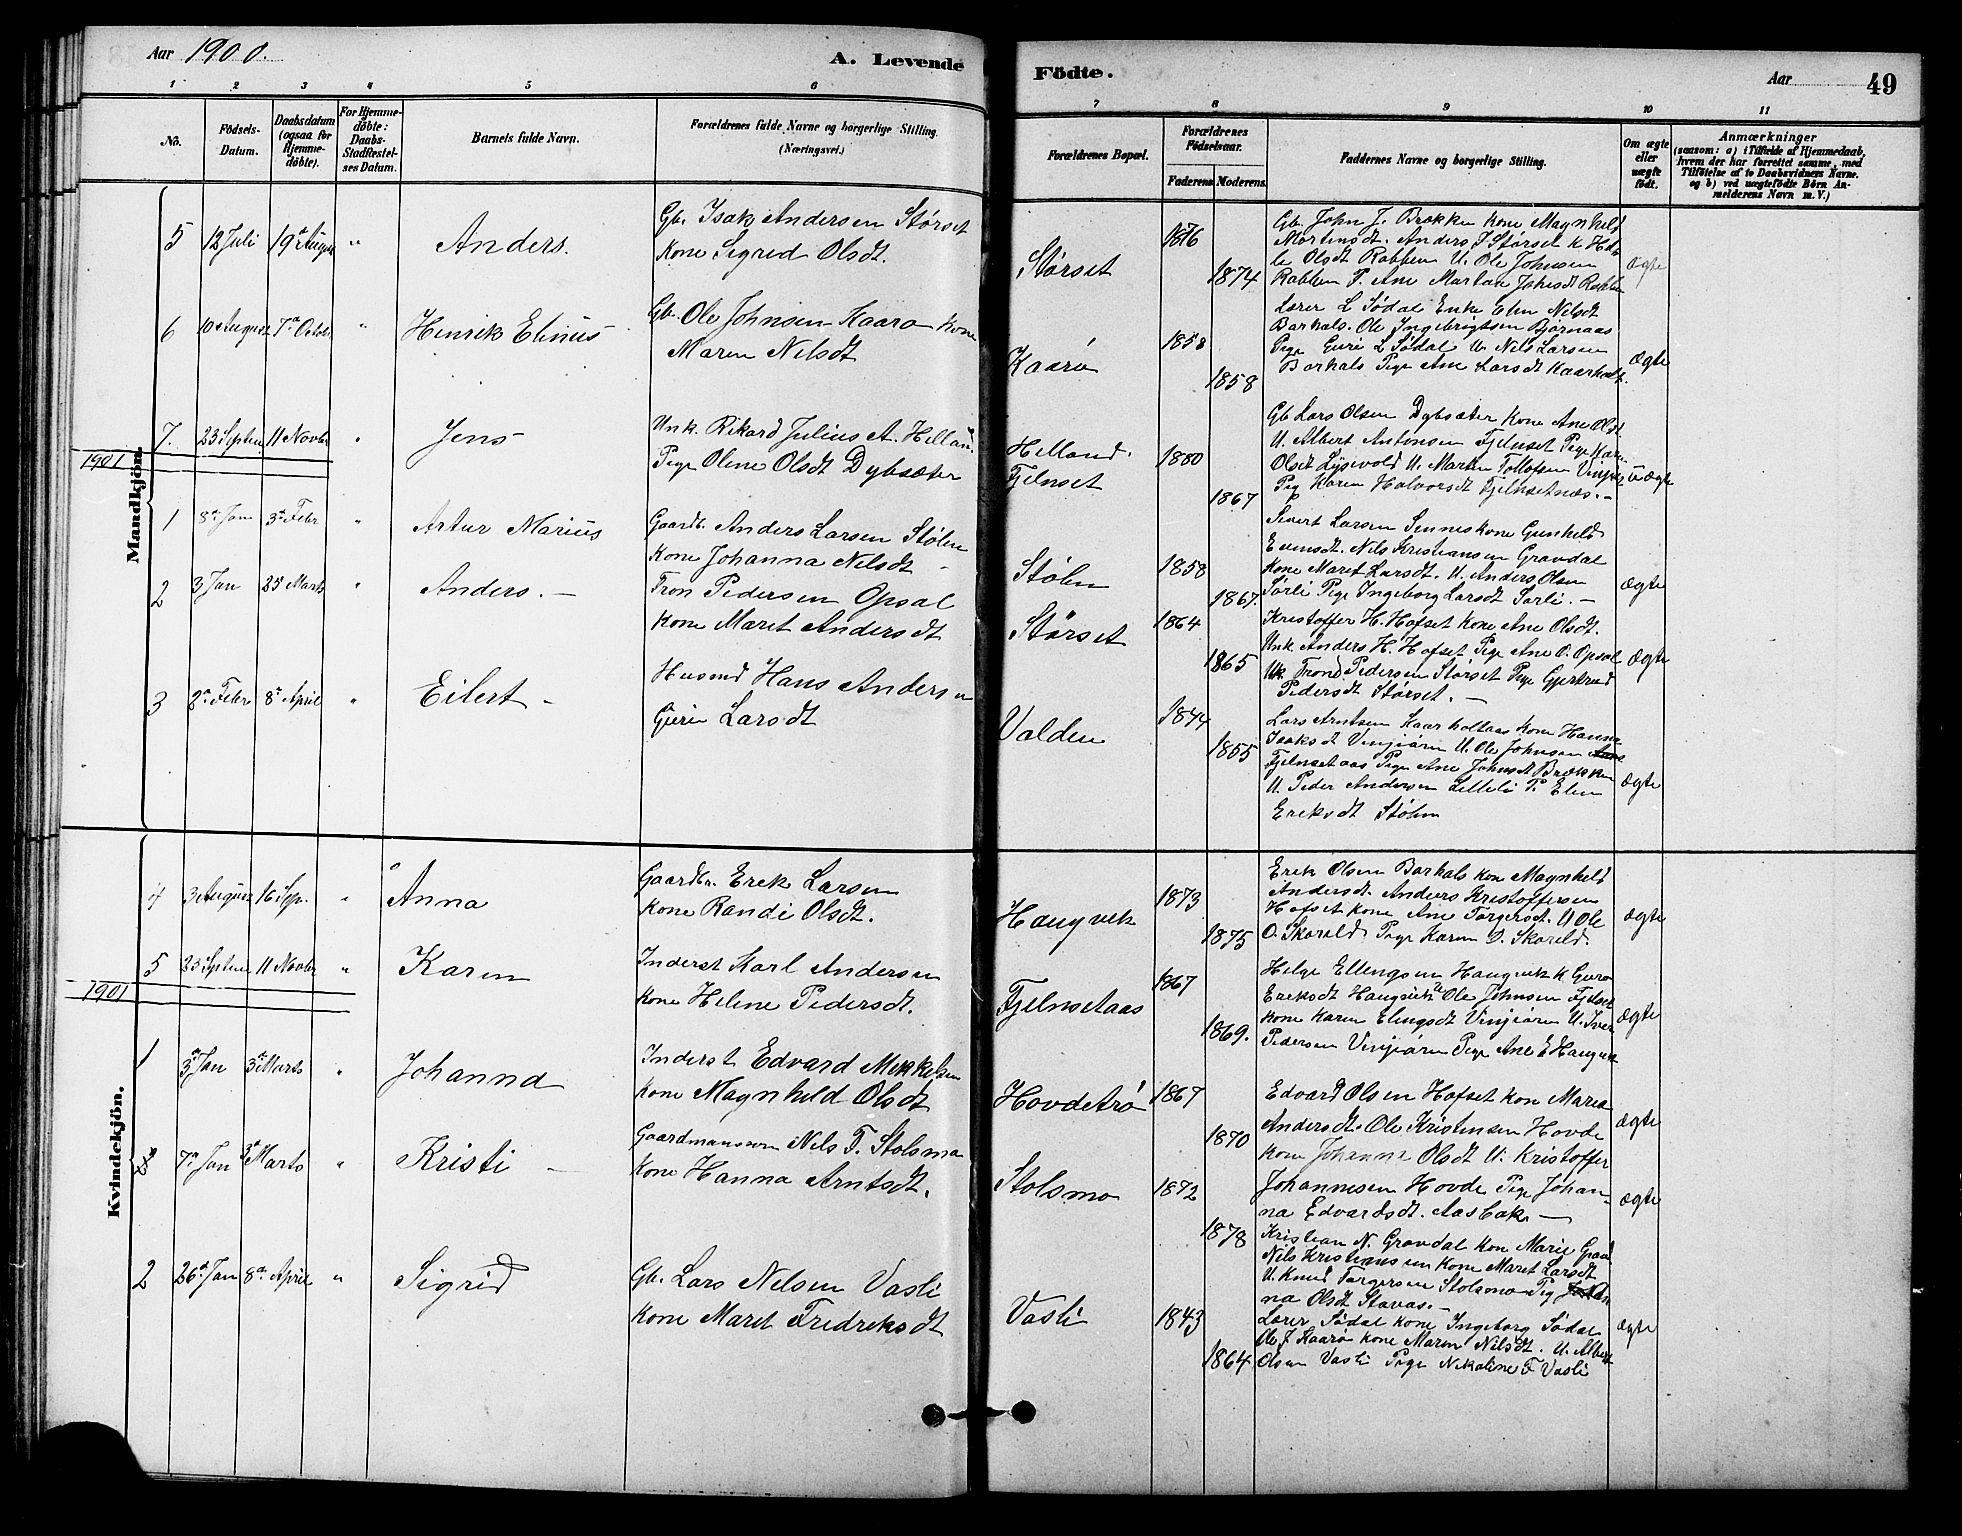 Aar 1900.
A. Levende
Födte.
Aar
49
1 2 3 4 5 6 7 8 9 10 11
No.
Födsels-Datum.
Daabsdatum (ogsaa for Hjemmedöbte).
For Hjemmedöbte: Daabs-Stadfæstelses Datum.
Barnets fulde Navn.
Forældrenes fulde Navne og borgerlige Stilling. (Næringsvei.)
Forældrenes Bopæl.
Forældrenes Födselsaar.
Faderens
Moderens.
Faddernes Navne og borgerlige Stilling.
Om ægte eller uægte födt.
Anmærkninger
(saasom: a) i Tilfælde af Hjemmedaab,
hvem der har forrettet samme, med
Tilföielse af to Daabsvidners Navne.
og b) ved uægtefödte Börn Anmelderens Navn m. V.)
Mandkjön.
5 12 Juli 19de August " Anders. Gb. Isak Andersen Størset
Kone Sigrid Olsdt.
Størset 1876 1874
Gb. John J. Brækken Kone Magnhild
Mortensdt. Anders I Størset K Hel-
le Olsdt Robben U. Ole Johnsen
Robben P. Ane Martha Johnsdt Robben
ægte
6 10 August 7de Octob " Henrik Elinus Gb. Ole Johnsen Kaarø Kone
Maren Nilsdt
Kaarø 1858 1858
Lærer L Sødal Enke Elen Nilsdt
Barhals. Ole Ingebrigtsen Bjørnaas
Pige Guri L Sødal U. Nils Larsen
Barhals Pige Ane Larsdt Kaarholt.
ægte
7. 23 Septem 11 Novbr " Jens Unk. Rikard Julius A. Helland
Pige Olene Olsdt Dybsæter
Helland.
Fjelnset 1880 1867
Gb Lars Olsen Dybsæter Kone Ane Olsdt
U. Albert Antonsen Fjelnset Pige Karn
Olsdt Lysevold U. Martin Tollofsen Vinjør
Pig Karen Halvorsdt Fjelnsetnæs. -
uægte
1901
1 8de Jan 3de Febr " Artur Marius Gaardb. Anders Larsen Stølen
Kone Johanna Nilsdt -
Stølen 1858 1867.
Sivert Larsen Sinnes kone Gunhild
Evensdt. Nils Kristiansen Gravdal
Kone Maret Larsdt. U. Anders Olsen
Sørli Pige Ingeborg Larsdt Sørli. -
ægte
2 3 Jan 25 Marts " Anders. - Tron Pedersen Opsal
Kone Maret Andersdt
Størset 1864 1865
Kristoffer H. Hofset Kone Ane Olsdt.
Unk Anders H. Hofset Pige Ane O. Opsal
Uk. Trond Pedersen Størset Pige Gjertrud
Pedersdt Størset. -
ægte
3 2de Febr 8de April " Eilert - Husmd Hans Andersn
Guri Larsdt
Valden 1844 1855
Lars Arntsen Kaarholtaas Kone Hanna
Isaksdt Vinjeørn U. Ole Johnsen
Fjelnsetaas Pige Ane Johnsdt Brækken
U. Peder Andersen Lilleli P. Elen
Eriksdt Stølen
ægte
Kvindekjön.
4 3 August 16 Sep. " Anna Gaardbr. Erik Larsen
Kone Randi Olsdt.
Haugvik 1873 1875
Erik Olsen Barhals kone Magnhild
Andersdt. Anders Kristoffersen
Hofset kone Ane Torgersdt. U Ole
O. Skoreld Pige Karen O. Skoreld.
ægte
5 23 Septem 11 Novbr " Karen Inderst Karl Andersen
Kone Helene Pedersdt.
Fjelnsetaas 1867 1869.
Helge Ellengsen Haugvik K Guro
Eriksdt Haugvik Ole Johnsen Fjelnset
Kone Karen Elingsdt Vinjeørn U. Iver
Pedersen Vinjeørn Pige Ane E Haugvik
ægte
1901
1 3de Jan 3de Marts " Johanna Inderst Edvard Mikkelsen
Kone Magnhild Olsdt
Hovdetrø 1867 1870
Edvard Olsen Hofset kone Maria
Andersdt. Ole Kristensen Hovde
Kone Johanna Olsdt U. Kristoffer
Johannesen Hovde Pige Johan-
na Edvardsdt. Aasbak. -
ægte
7de Jan 3de Marts " Kristi - Gaardmanssøn Nils T. Stolsmo
Kone Hanna Arntsdt.
Stolsmo 1872 1878
Kristian N. Gravdal Kone Marie Gravd
Nils Kristiansen Kone Maret Larsdt
U. Knud Torgersen Stolsmo Pig Johan
na Olsdt Stavas. -
ægte
2 26de Jan 8de April " Sigrid Gb. Lars Nilsen Vasli
Kone Maret Fredreksdt
Vasli 1843 1864
Lærer Sødal Kone Ingeborg Sødal
Ole J Kaarø Kone Maren Nilsdt. U. Albert
Olsen Vasli Pige Nikoline F Vasli
ægte